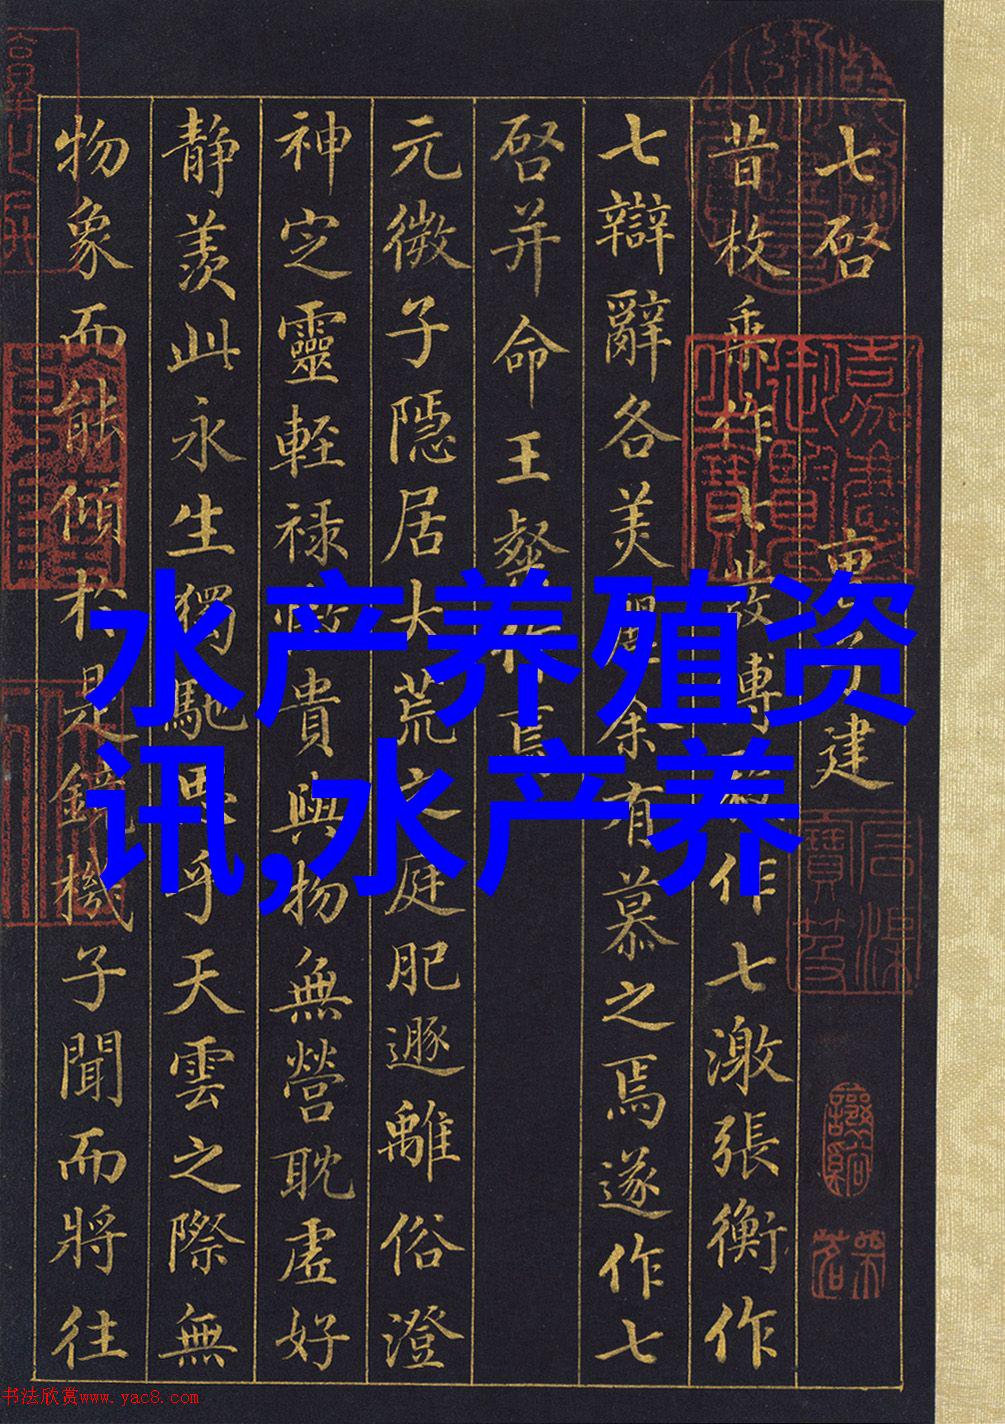 七啓 子建
昔枚乗作七發傅毅作七激張衡作
七辯辭各美麗余有慕之焉遂作七
啓并命王粲作焉
元微子隱居大荒之庭肥遯離俗澄
神定靈輕禄傲貴與物無營耽虚好
静羨此永生獨馳思乎天雲之際無
物象而能傾於是鏡機子聞而將往
嘉慶御覽之寶
水产养殖资
讯,水产养
书法欣赏www.yac8.com